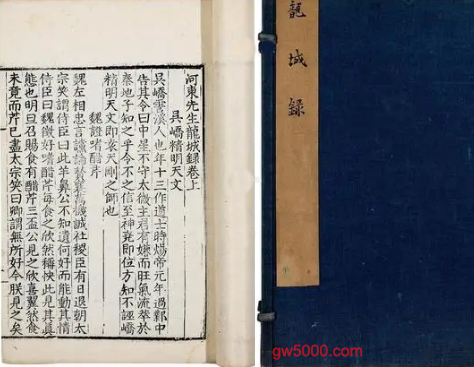 龍城錄
河東先生龍城錄卷上
吳嶠精明天文
吳嶠霅溪人也年十三作道士時煬帝元年過鄴中
告其令曰中星不守太微主君有嫌而旺氣流萃於
秦地子知之乎令不之信至神堯即位方知不誣嶠
精明天文即袁天剛之師也
魏證嗜醋芹
魏左相忠言讜論贊襄萬機誠社稷臣有日退朝太
宗笑謂侍臣曰此羊鼻公不知遺何好而能動其情
侍臣曰魏徵好嗜醋芹每食之欣然稱快此見其真
態也明旦召賜食有醋芹三盃公見之欣喜翼然食
未竟而芹已盡太宗笑曰卿謂無所好今朕見之矣
gw5000.com